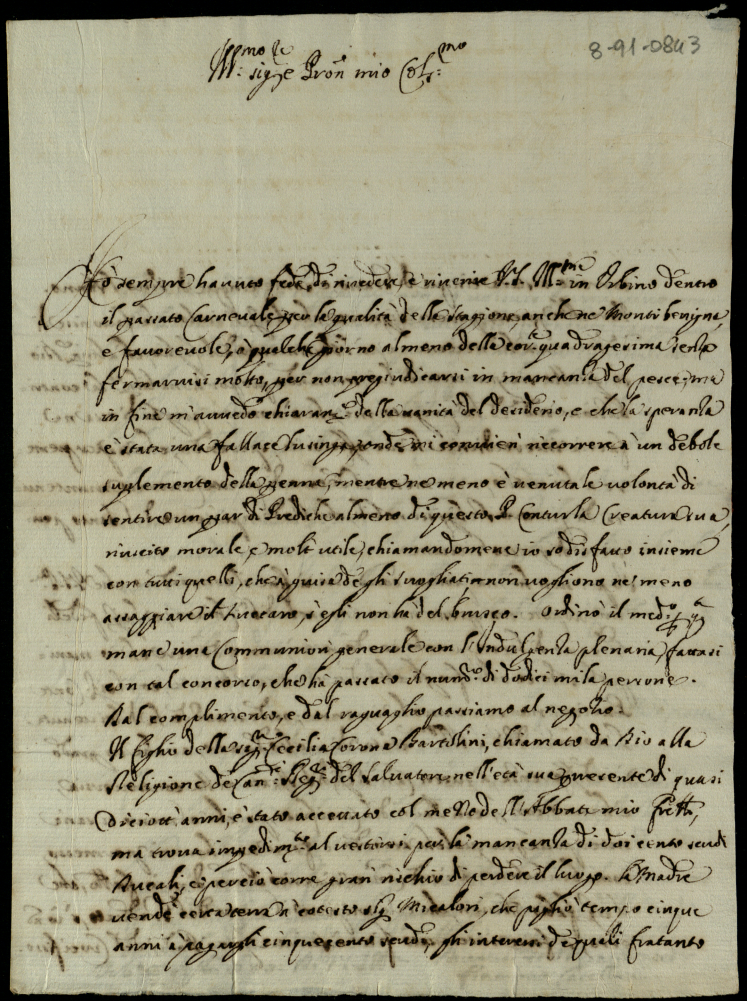 8-91-0843
Ill:mo
sig:re Pron mio Col:mo
Hò sempre havuto fede di rivedere, e riverire V.S. Ill:ma in Urbino dentro
il passato Carnevale per la qualità della stagione, anche ne Monti benigna,
e favorevole, ò qualche giorno almeno della cor:te quadragesima senza
fermarvisi molto, per non pregiudicarsi in mancanza del pesce; ma
in fine m'avvedo chiaram:te della vanità del desiderio, e che la speranza
è stata una fallace lusinga, onde mi convien ricorrere à un debole
suplemento della penna, mentre ne meno è venuta le volontà di
sentire un par di Prediche almeno di questo P. Creatura sua,
riuscito morale, e molt'utile, chiamandomene io sodisfatto insieme
con tutti quelli, che à guisa de gli svogliati non vogliono ne meno
assaggiare il Zuccaro, s'egli non hà del brusco. Ordinò il med:o
mane una Communion generale con l'Indulgenza plenaria, fattasi
con tal concorso, che hà passato il num:o di dodici mila persone.
Dal complimento, e dal raguaglio passiamo al negotio.
Il figlio della sig:ra Cecilia Corona Bartolini, chiamato da Dio alla
Religione de Can:ci Reg:ri del Salvatore nell'età sua presente di quasi
diciott'anni, è stato accettato col mezzo dell'Abbate mio frello,
ma trova impedim:to al vestirsi per la mancanza di doicento scudi
Ducali, e perciò corre gran rischio di perdere il luogo. La Madre
vendè certa terra à cotesto sig: Micaloni, che pigliò tempo cinque
anni à pagargli cinquecento scudi, gli interessi de quali fratanto